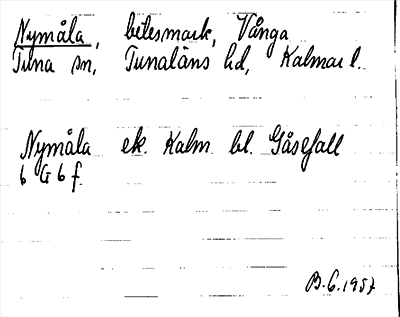 Nymåla, betesmark, Vånga
Tuna sn, Tunaläns hd, Kalmar l.
Nymåla ek. Kalm. bl. Gåsefall
6 G 6 f.
B.G. 1957